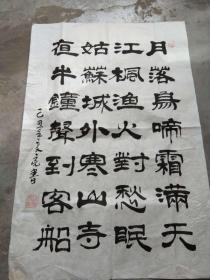 月落烏啼霜滿天
江楓渔火對愁眠
姑蘇城外寒山寺
夜半鐘聲到客船
己丑年